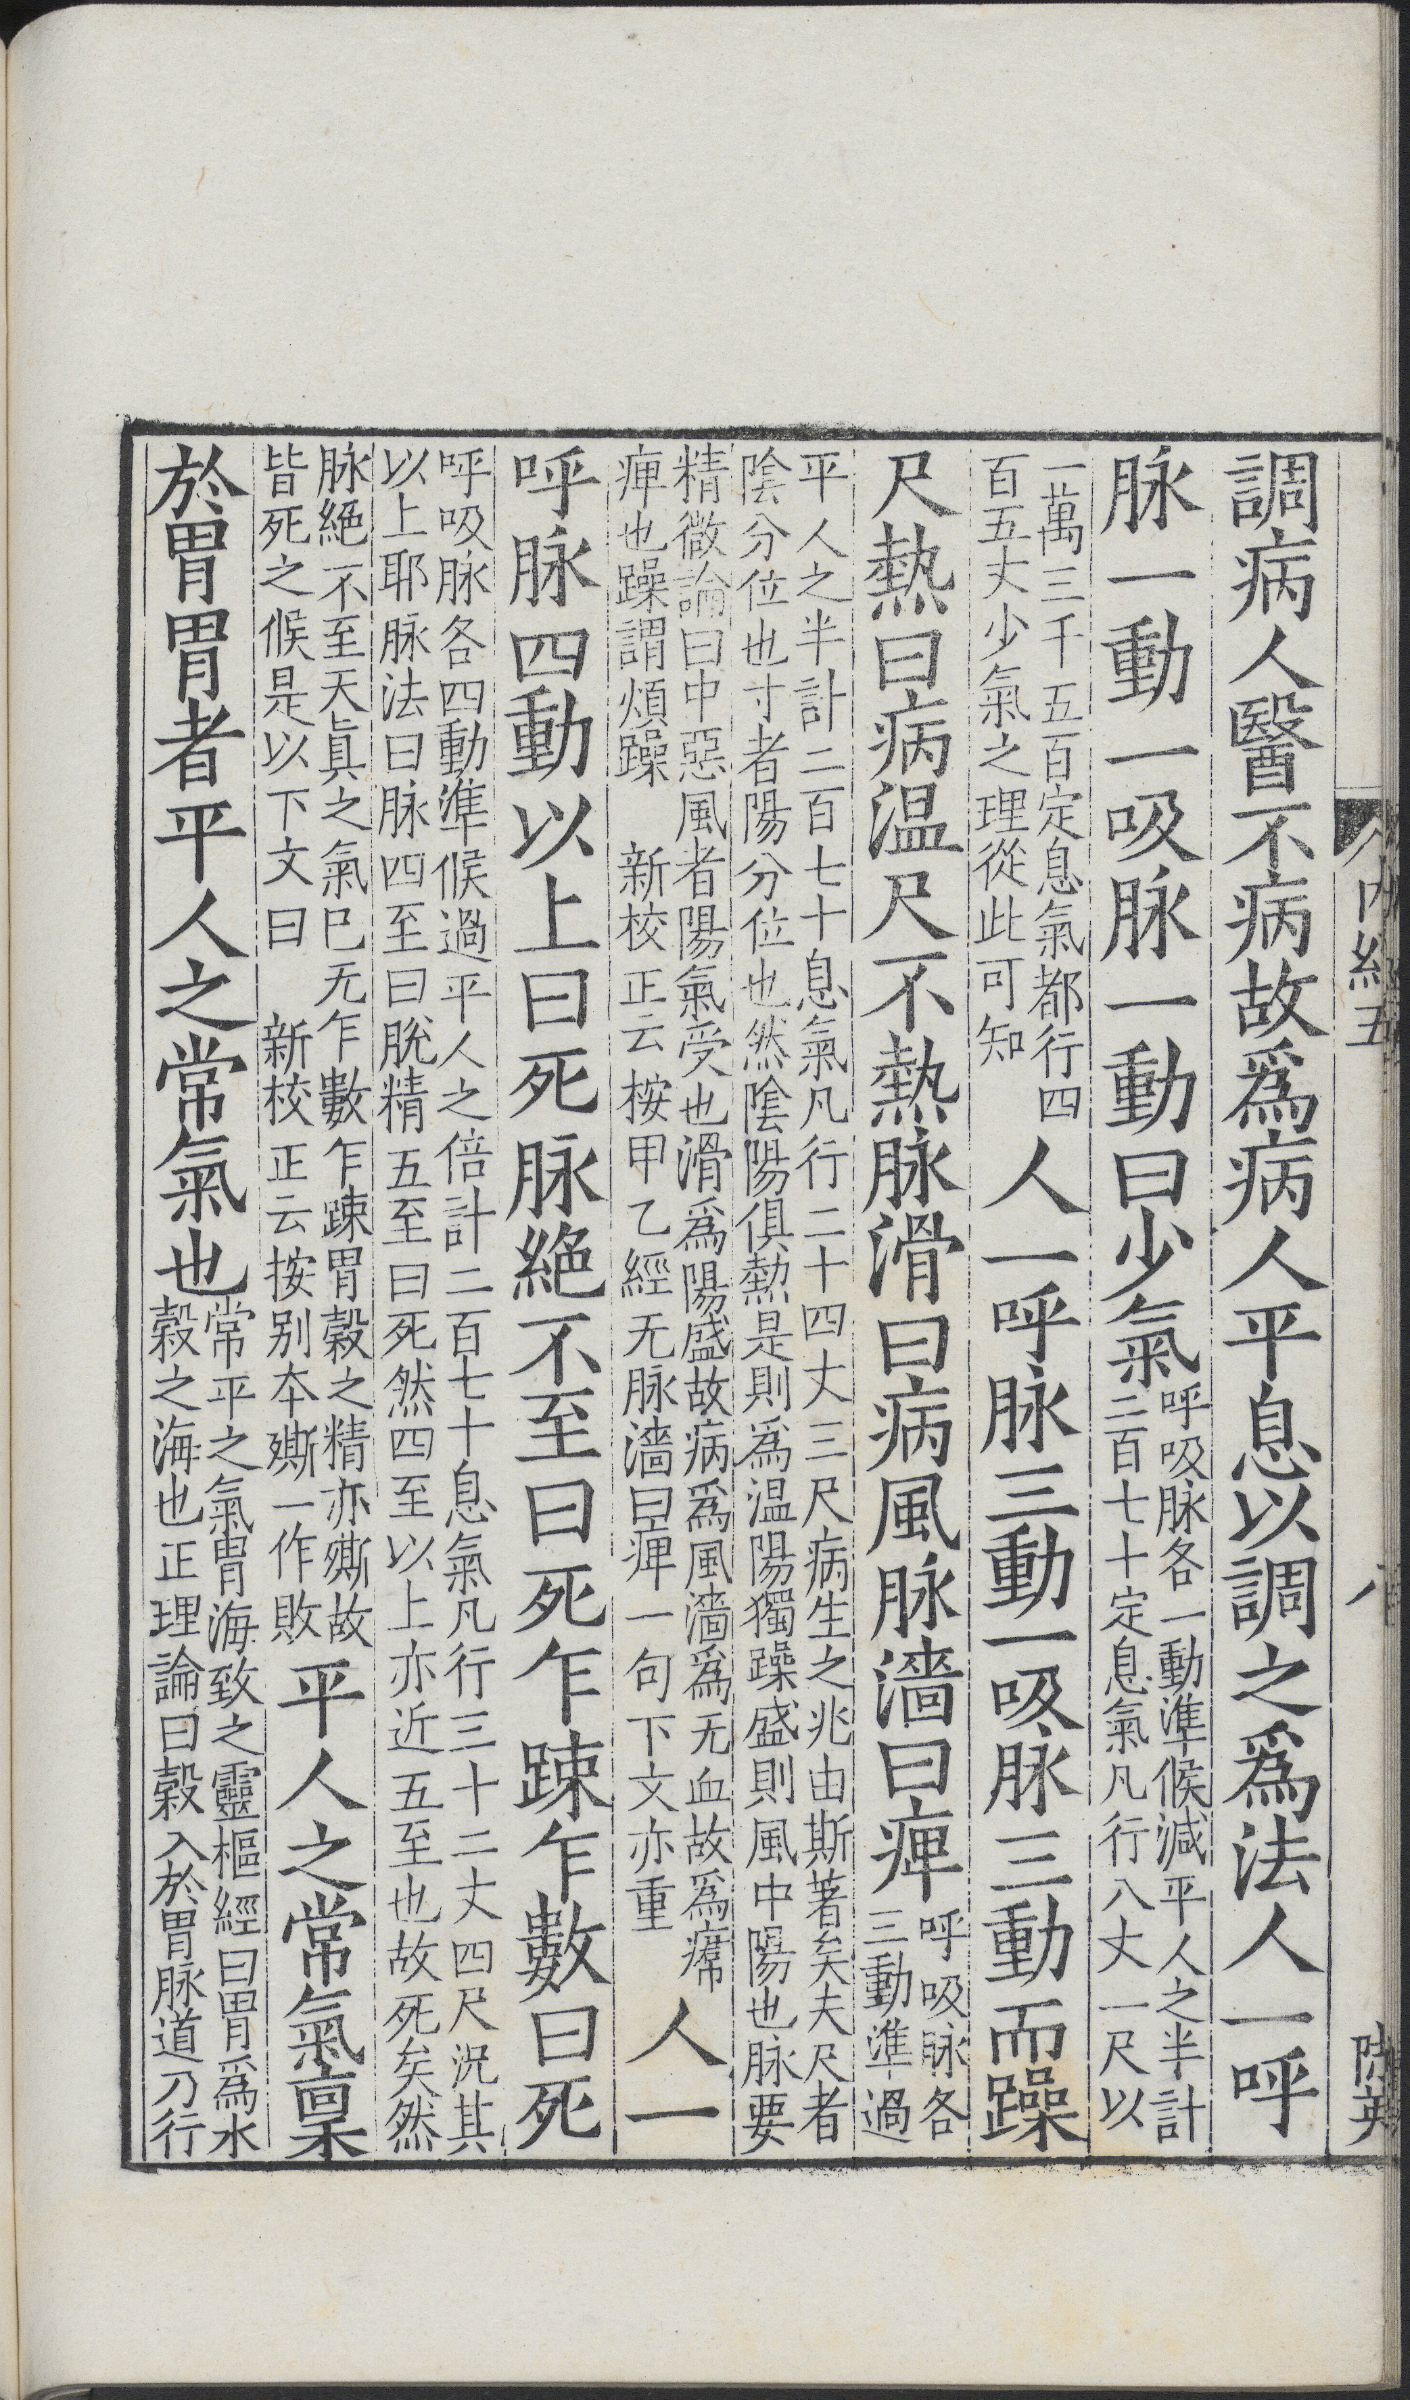 調病人醫不病故爲病人平息以調之爲法人一呼
脉一動一吸脉一動曰少氣
呼吸脉各一動準候減平人之半計
二百七十定息氣凡行八丈一尺以
一萬三千五百定息氣都行四
百五丈少氣之理從此可知
人一呼脉三動一吸脉三動而躁
尺熱曰病温尺不熱脉滑曰病風脉濇曰痺
呼吸脉各
三動準過
平人之半計二百七十息氣凡行二十四丈三尺病生之兆由斯著矣夫尺者
陰分位也寸者陽分位也然陰陽俱熱是則爲温陽獨躁盛則風中陽也脉要
精微論曰中惡風者陽氣受也滑爲陽盛故病爲風濇爲无血故爲𤸷
痺也躁謂煩躁 新校正云按甲乙經无脉濇曰痺一句下文亦重
人一
呼脉四動以上曰死脉絕不至曰死乍踈乍數曰死
呼吸脉各四動準候過平人之倍計二百七十息氣凡行三十二丈四尺況其
以上耶脉法曰脉四至曰脫精五至曰死然四至以上亦近五至也故死矣然
脉絕不至天眞之氣已无乍數乍踈胃榖之精亦㒋故
皆死之候是以下文曰 新校正云按别本㒋一作敗
平人之常氣稟
於胃胃者平人之常氣也
常平之氣胃海致之靈樞經曰胃爲水
榖之海也正理論曰榖入於胃脉道乃行
内經五
八
陸英